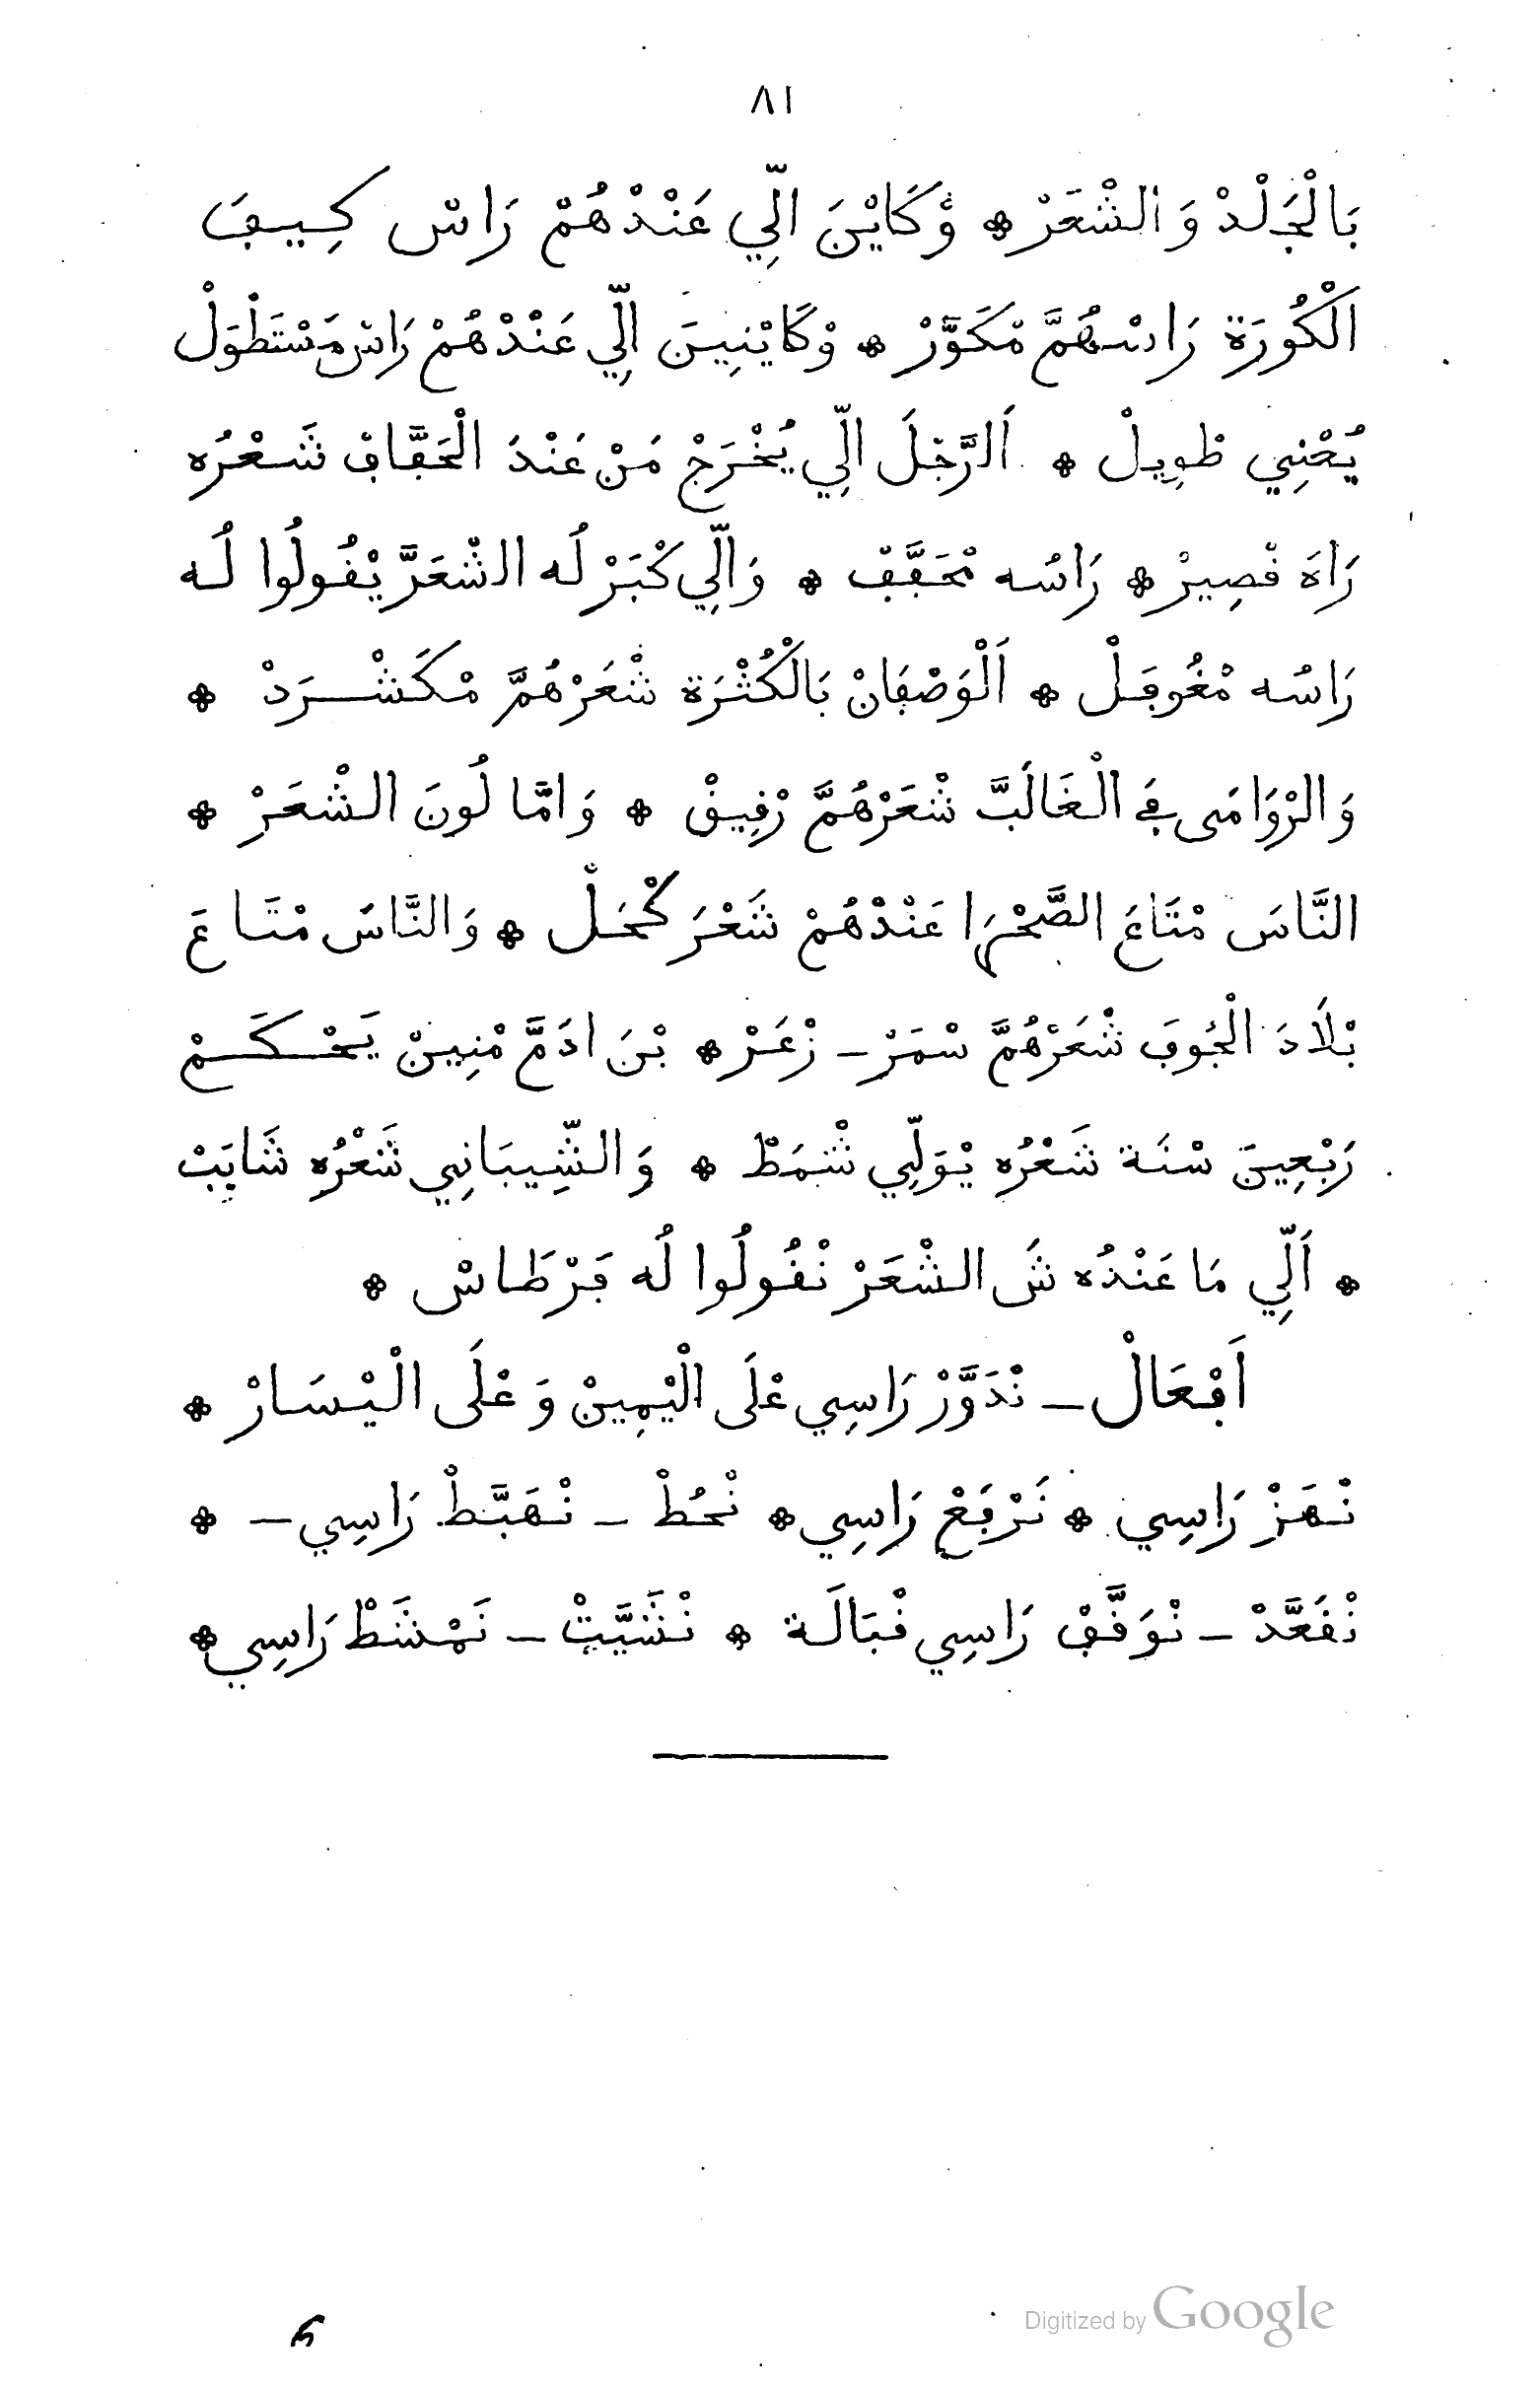 ٨١
بَالْجَلْدْ وَالشْعَرْ * وْكَايْنَ الِّي عَنْدْهُمْ رَاسْ كِيڢَ
الْكُورَة رَاسْهُمَّ مْكَوَّرْ * وْكَايْنِينَ الِّي عَنْدْهُمْ رَاسْ مَسْتَطْوَلْ
يُعْنِي طْوِيلْ * اَلرَّجْلَ الِّي يُخْرَجْ مَنْ عَنْدَ الْحَڢَّاڢْ شَعْرُه
رَاهَ ڧْصِيرْ * رَاسُه مْحَڢَّڢْ * وَالِّي كْبَرْ لُه الشْعَرَّ يْڧُولُوا لُه
رَاسُه مْغُوڢَلْ * اَلْوَصْڢَانْ بَالْكُثْرَة شْعَرْهُمَّ مْكَشْرَدْ *
وَالرْوَامَى ڢَي الْغَالَبَّ شْعَرْهُمَّ رْڧِيڧْ * وَامَّا لُونَ الشْعَرْ *
النَّاسَ مْتَاعَ الصَّحْرَا عَنْدْهُمْ شَعْرَ كْحَلْ * وَالنَّاسَ مْتَاعَ
بْلَادَ الْجُوڢَ شْعَرْهُمَّ سْمَرْ - زْعَرْ * بْنَ ادَمَّ مْنِينْ يَحْكَمْ
رَبْعِينَ سْنَة شَعْرُه يْوَلِّي شْمَطْ * وَالشِّيبَانِي شَعْرُه شَايَبْ
* اَلِّي مَا عَنْدُه شَ الشْعَرْ نْڧُولُوا لُه ڢَرْطَاسْ *
اَڢْعَالْ - نْدَوَّرْ رَاسِي عْلَى الْيْمِينْ وَعْلَى الْيْسَارْ *
نْهَزْ رَاسِي * نَرْڢَعْ رَاسِي * نْحُطْ - نْهَبَّطْ رَاسِي - *
نْڧَعَّدْ - نْوَڧَّڢْ رَاسِي ڧْبَالَة * نْشَيَّتْ - نَمْشَطْ رَاسِي *
Digitized by Google